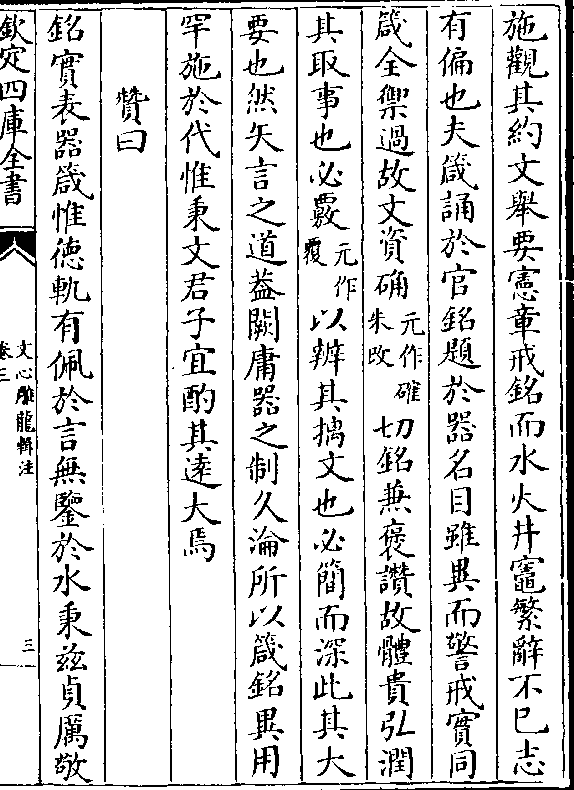 施觀其約文舉要憲章戒銘而水火井竈繁辭不已志
有偏也夫箴誦於官銘題於器名目雖異而警戒實同
箴全禦過故文資确元作確朱改切銘兼褒讚故體貴弘潤
其取事也必覈元作覆以辨其摛文也必簡而深此其大
要也然矢言之道蓋闕庸器之制久淪所以箴銘異用
罕施於代惟秉文君子宜酌其遠大焉
贊曰
銘實表器箴惟德軌有佩於言無鑒於水秉兹貞厲敬
欽定四庫全書
文心雕龍輯注
卷三
三